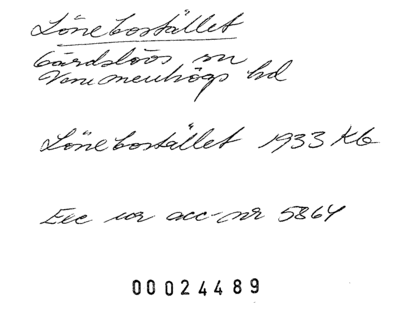 Lönebostället
Gärdslövs sn
Vemmenhögs hd
Lönebostället 1933 KG
Exc ur acc-nr 5864
00024489